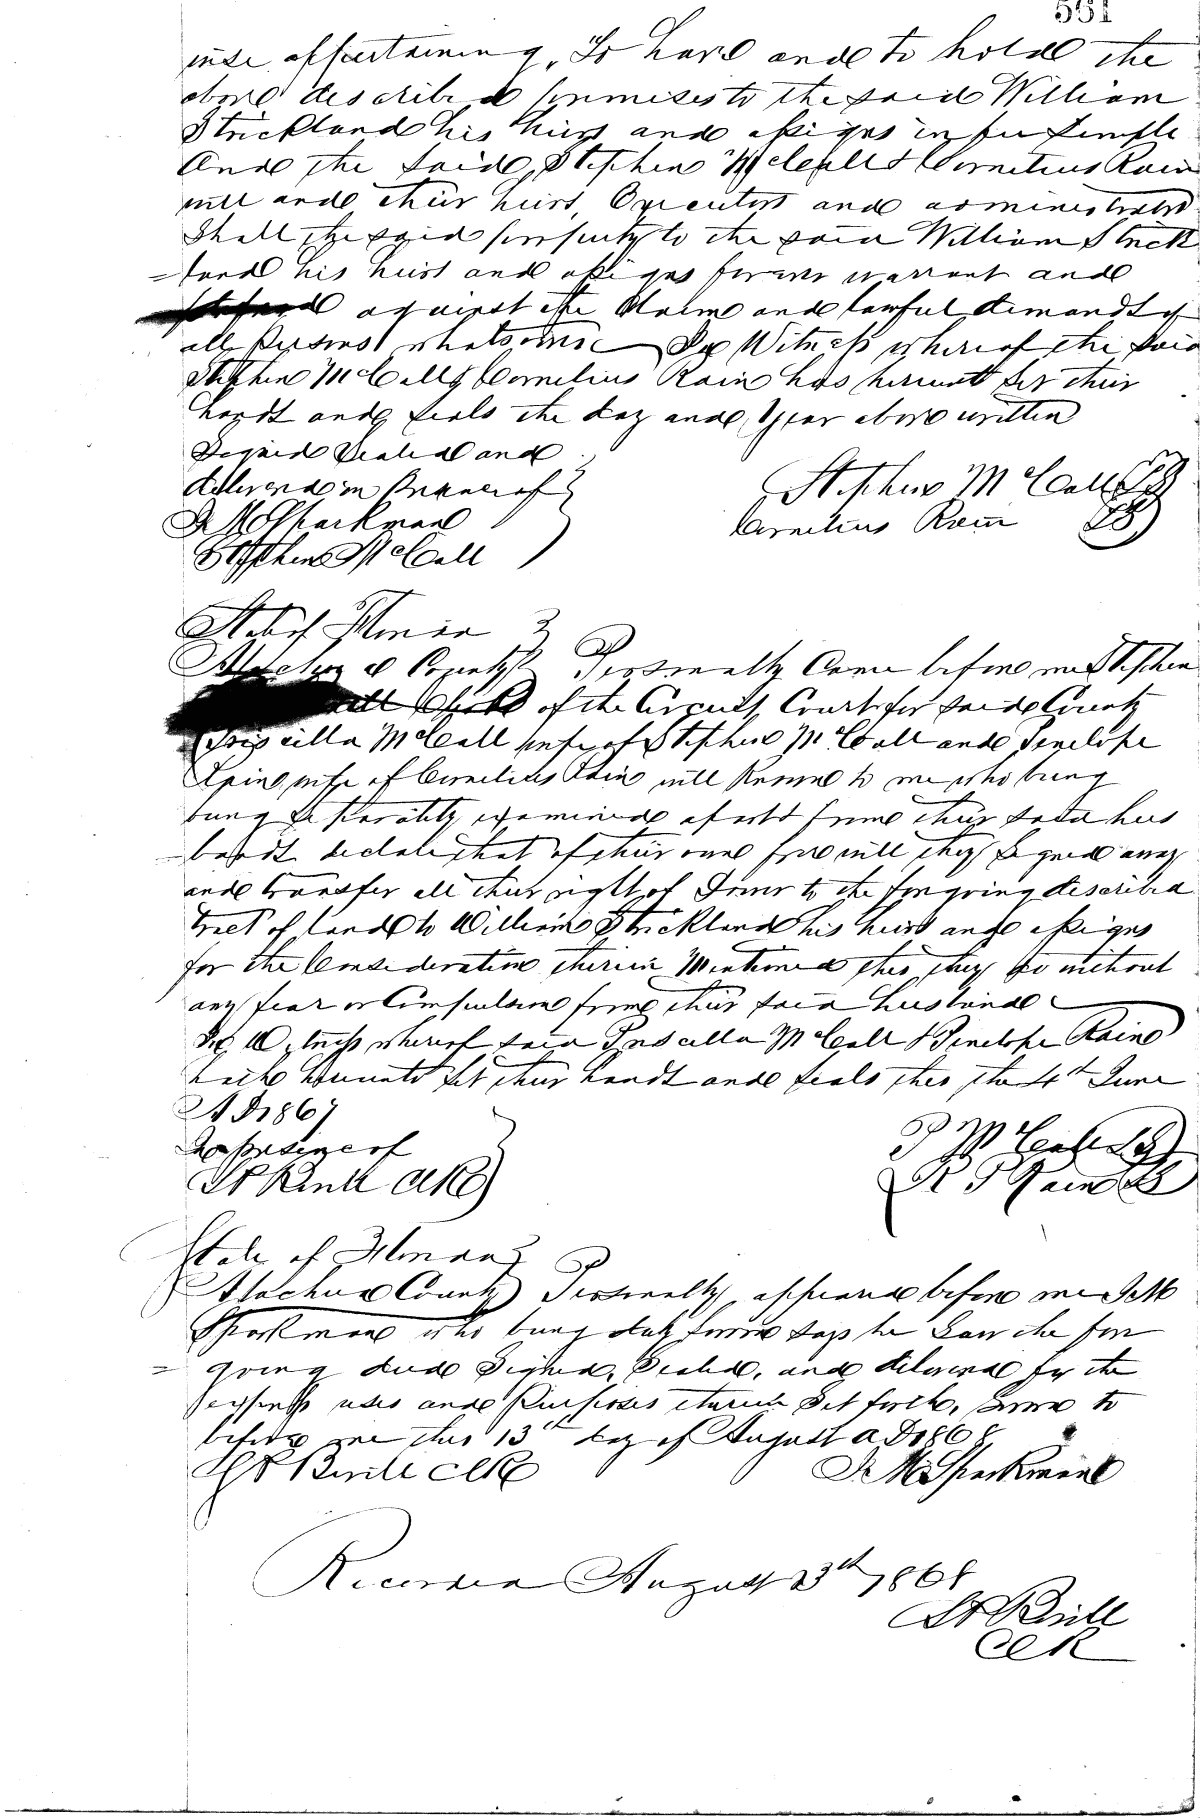 561
wise appertaining, To have and to hold the
above described premises to the said William
Strickland his heirs and assigns in fee Simple
And the said Stephen McCall & Cornelius Rain
will and their heirs, Executors and administrators
Shall the said property to the said William Strick
=land his heirs and assigns forever warrant and
defend against the Claim and lawful demands of
all persons whatsoever In Witness whereof the said
Stephen McCall & Cornelius Rain has hereunto set their
hands and seals the day and year above written
Signed Sealed and
delivered in Presence of
J M Sparkman
Stephen McCall
Stephen McCall LS
Cornelius Rain LS
State of Florida
Alachua County Personally Came before me Stephen
Clerk of the Circuit Court for said County
Priscilla McCall wife of Stephen McCall and Penelope
Rain wife of Cornelius Rain well known to me who being
being separately examined apart from their said hus
=bands declare that of their own free will they signed away
and transfer all their right of Dower to the foregoing described
tract of land to William Strickland his heirs and assigns
for the Consideration therein Mentioned this they do without
any fear or Compulsion from their said husband
In Witness whereof said Priscilla McCall & Penelope Rain
have hereunto set their hands and seals this the 4th June
A D 1867
In presence of
CLK
P McCall LS
P Rain LS
State of Florida
Alachua County Personally appeared before me J M
Sparkman who being duly sworn says he Saw the fore
=going deed Signed, Sealed, and delivered for the
uses and Purposes therein Set forth, Sworn to
before me this 13th day of August A D 1868
CLK
J M Sparkman
Recorded August 13th 1868
CLK